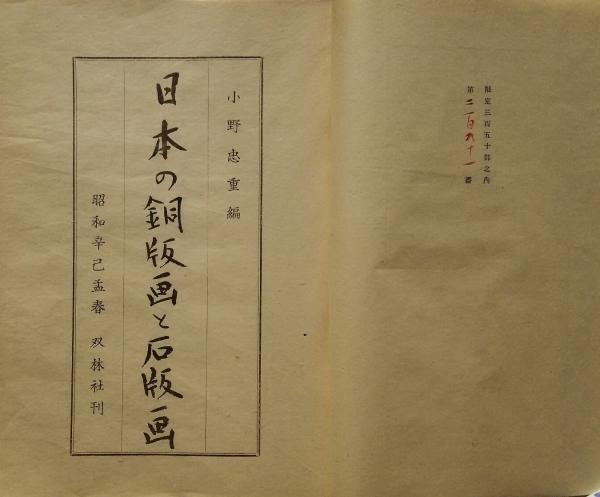 限定三百五十部之内
第二百九十一番
小野忠重編
日本の銅版画と石版画
昭和辛己孟春 双林社刊